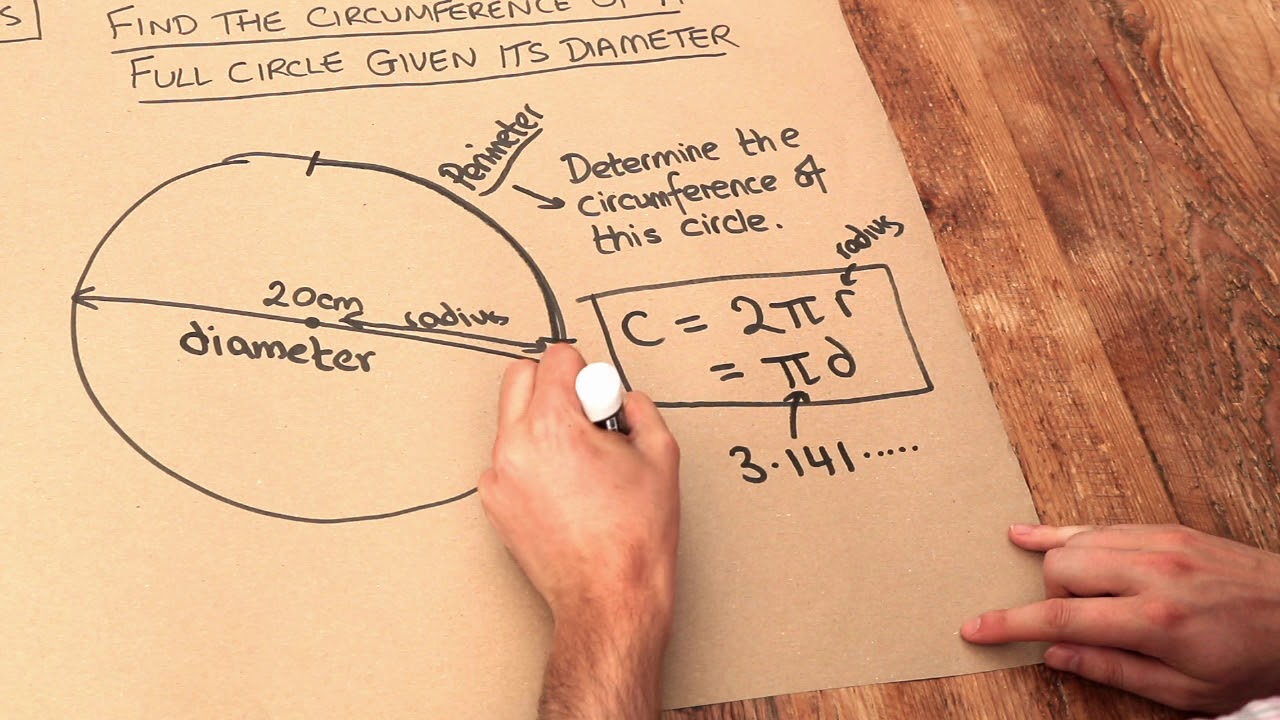 S
FIND THE CIRCUMFERENCE OF A
FULL CIRCLE GIVEN ITS DIAMETER
Perimeter
Determine the
circumference of
this circle.
20cm
radius
diameter
radius
C = 2πr
= πd
3.141.....